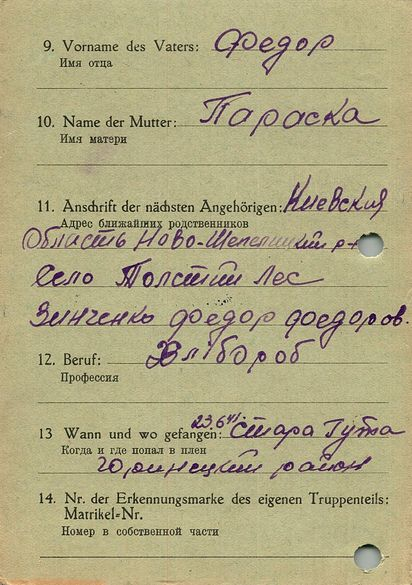 9. Vorname des Vaters: Федор
Имя отца
10. Name der Mutter: Параска
Имя матери
11. Anschrift der nächsten Angehörigen: Киевская
Адрес ближайших родственников
Область Ново-Шепелицкий р-
село Толстий Лес
Зинченко Федор Федоров.
12. Beruf: Хлібороб
Профессия
13 Wann und wo gefangen: 23,6 41 Стара Гута
Когда и где попал в плен
район
14. Nr. der Erkennungsmarke des eigenen Truppenteils:
Matrikel-Nr.
Номер в собственной части